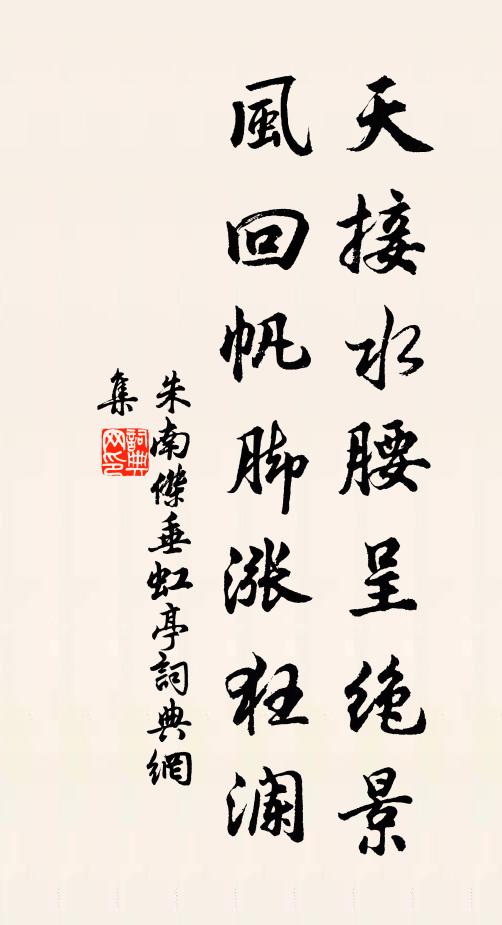 天接水腰呈绝景
風回帆脚漲狂澜
朱南傑垂虹亭詞典網
集
詞典
网印